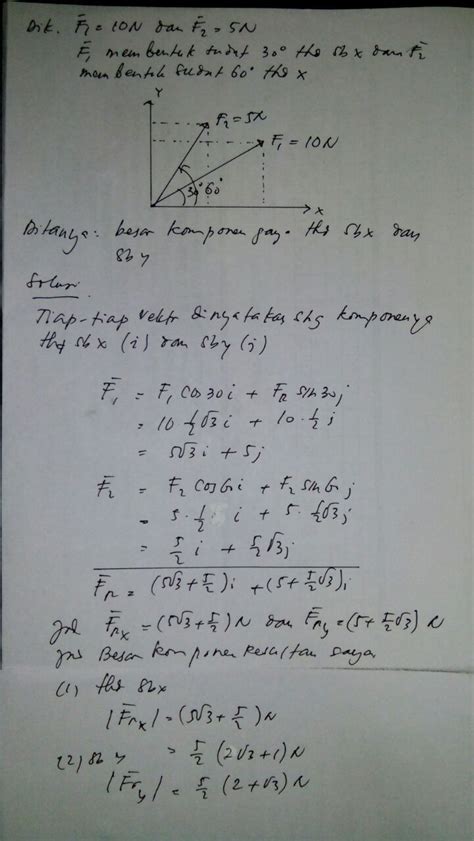 Dik. F̄₁ = 10N dan F̄₂ = 5N
F̄₁ membentuk sudut 30° thd sb x dan F̄₂
membentuk sudut 60° thd x
Y
F₂ = 5N
F₁ = 10N
30° 60°
X
Ditanya: besar komponen gaya thd sbx dan
sb y
Solusi
Tiap-tiap vektor dinyatakan dng komponennya
thd sbx (i) dan sby (j)
F̄₁ = F₁ cos30i + F₁ sin30j
= 10 ½√3 i + 10·½ j
= 5√3 i + 5j
F̄₂ = F₂ cos60i + F₂ sin60j
= 5·½ i + 5·½√3 j
= 5/2 i + 5/2 √3 j
F̄r = (5√3 + 5/2)i + (5 + 5/2 √3)i
jadi F̄rx = (5√3 + 5/2) N dan F̄ry = (5 + 5/2 √3) N
Besar komponen resultan
(1) thd sbx
|F̄rx| = (5√3 + 5/2) N
= 5/2 (2√3 + 1) N
(2) sb y
|F̄ry| = 5/2 (2 + √3) N